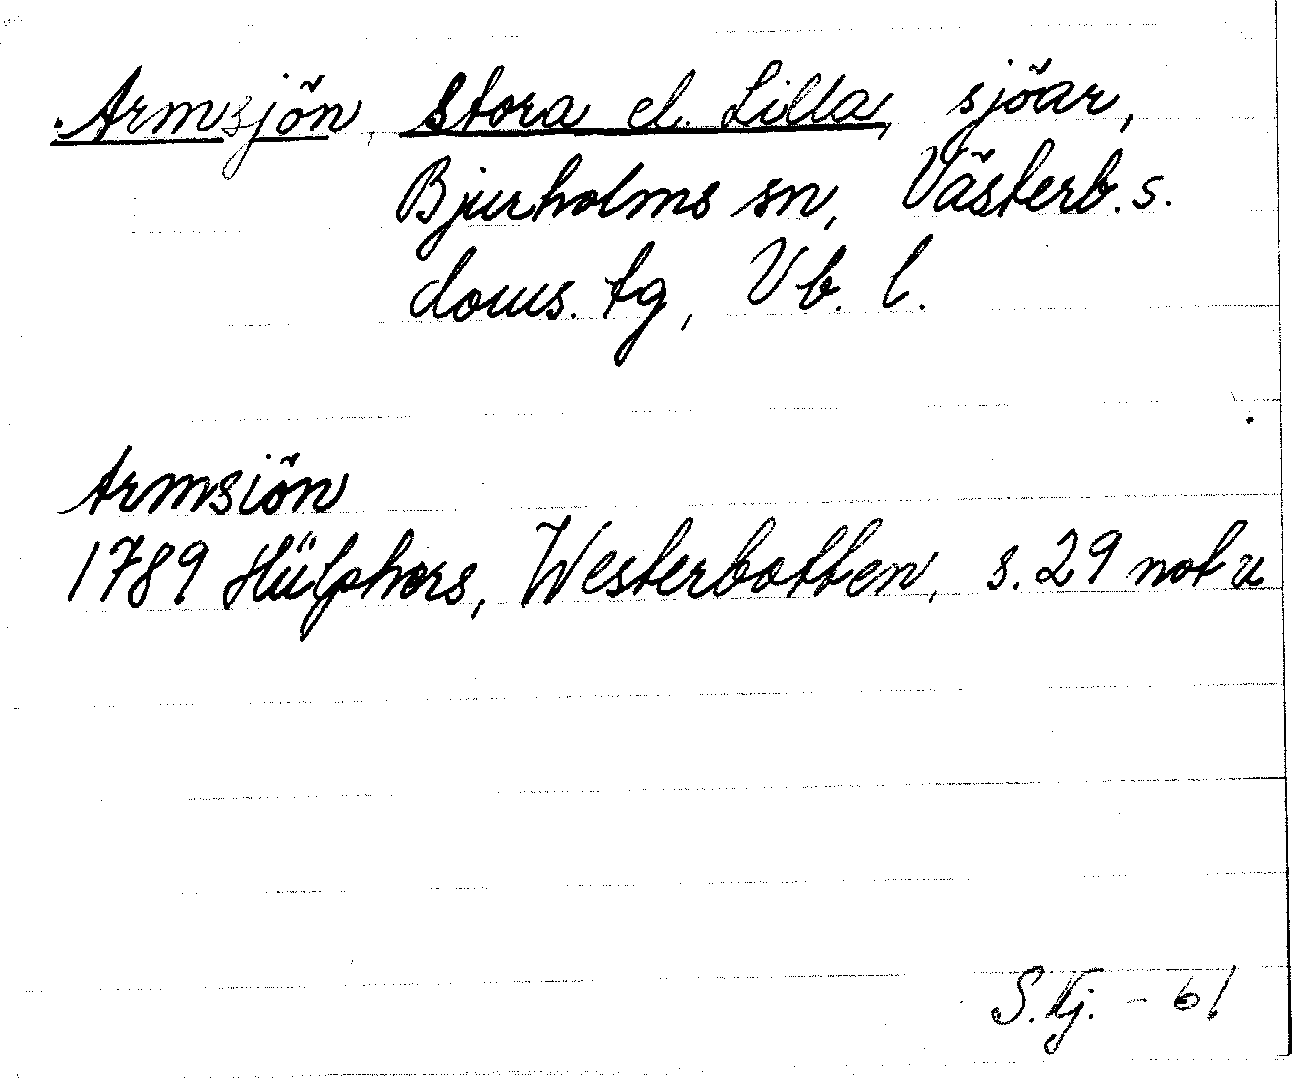 Armsjön, Stora el. Lilla, sjöar,
Bjurholms sn, Västerb. s.
doms. tg, Vb. l.
Armsiön
1789 Hülphers, Westerbotten, s. 29 not u
S. Kj. - 61